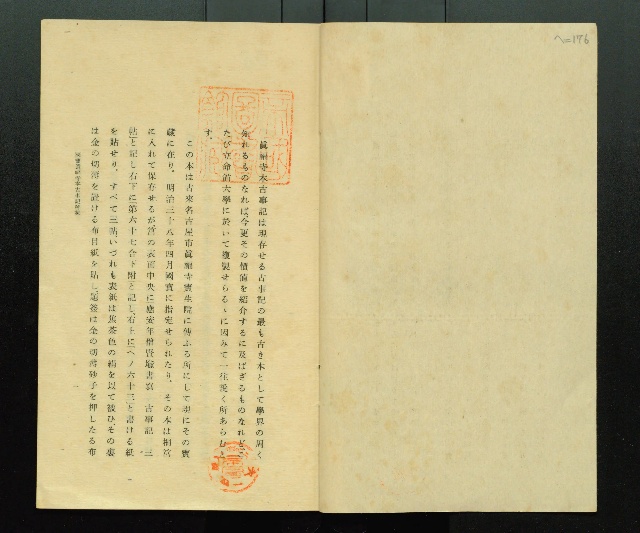 へ=176
眞福寺本古事記は、現存せる古事記の最も古き本として學界の周く
知れるものなれば、今更その價値を紹介するに及ばざるものなれど、
たび立命館大學に於いて複製せらるゝに因みて一往説く所あらむと
す。
この本は古來名古屋市眞福寺寶生院に傳ふる所にして現にその寶
藏に在り。明治三十八年四月國寶に指定せられたり。その本は桐筥
に入れて保存せるが、筥の表面中央に應安年僧賢瑜書寫 古事記 三
帖と記し右下に第六十七合下附と記し、右上に「ヘノ六十三」と書ける紙
を貼せり。すべて三帖、いづれも表紙は焦茶色の絹を以て被ひ、その裏
は金の切箔を置ける布目紙を貼し、題簽は金の切箔砂子を押したる布
國寶眞福寺本古事記解説
一